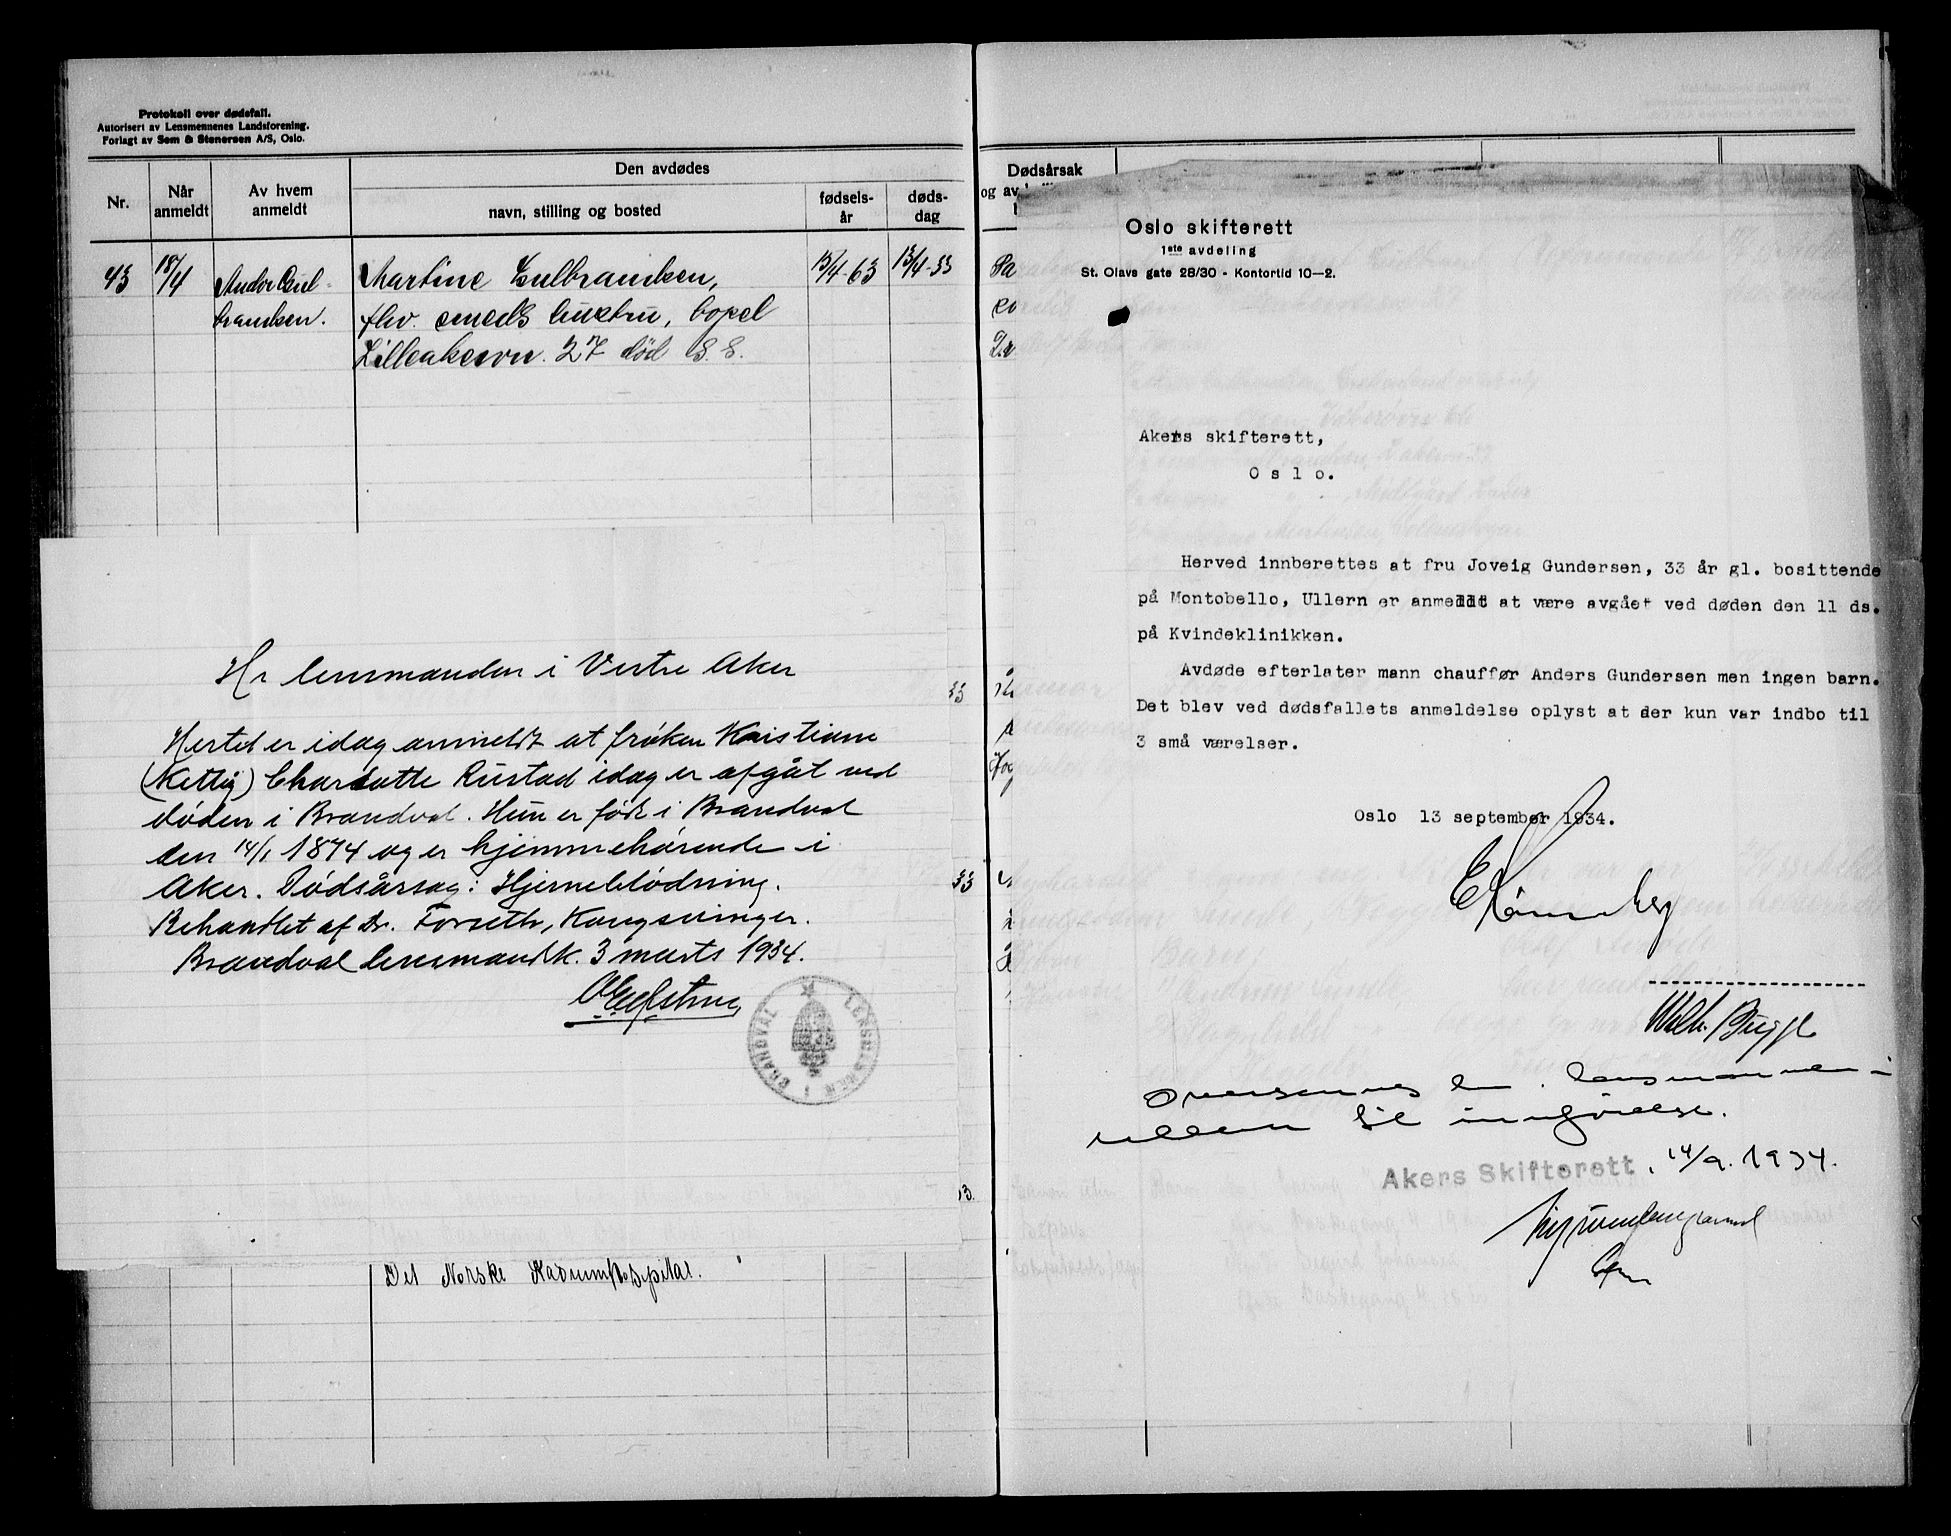 Protokoll over dødsfall.
Autorisert av Lensmennenes Landsforening.
Forlagt av Sem & Stenersen A/S, Oslo.
Nr.
Når anmeldt
Av hvem anmeldt
Den avdødes
navn, stilling og bosted
fødselsår
dødsdag
43
18/4
Andor Gulbrandsen.
Martine Gulbrandsen,
fhv. smeds hustru, bopel
Lilleakervn. 27 død S. S.
15/4-63
13/4-33
Hr lensmanden i Vestre Aker
Herted er idag anmeldt at frøken Kristiane
(Ketty) Charlotte Rustad idag er afgåt ved
døden i Brandval. Hun er født i Brandval
den 14/1 1874 og er hjemmehørende i
Aker. Dødsårsag: Hjerneblødning.
Behandlet af Dr. Forseth, Kongsvinger.
Brandval lensmandsk. 3 marts 1934.
LENSMANNEN I BRANDVAL
33
33
3.
Det Norske Radiumhospital.
Dødsårsak
og av
Oslo skifterett
1ste avdeling
St. Olavs gate 28/30 - Kontortid 10—2.
Akers skifterett,
Oslo.
Herved innberettes at fru Joveig Gundersen, 33 år gl. bosittende
på Montobello, Ullern er anmeldt at være avgået ved døden den 11 ds.
på Kvindeklinikken.
Avdøde efterlater mann chauffør Anders Gundersen men ingen barn.
Det blev ved dødsfallets anmeldelse oplyst at der kun var indbo til
3 små værelser.
Oslo 13 september 1934.
Wilh. Bugge
Oversendes hr. lensmannen i
Ullern til innførelse.
Akers Skifterett, 14/9. 1934.